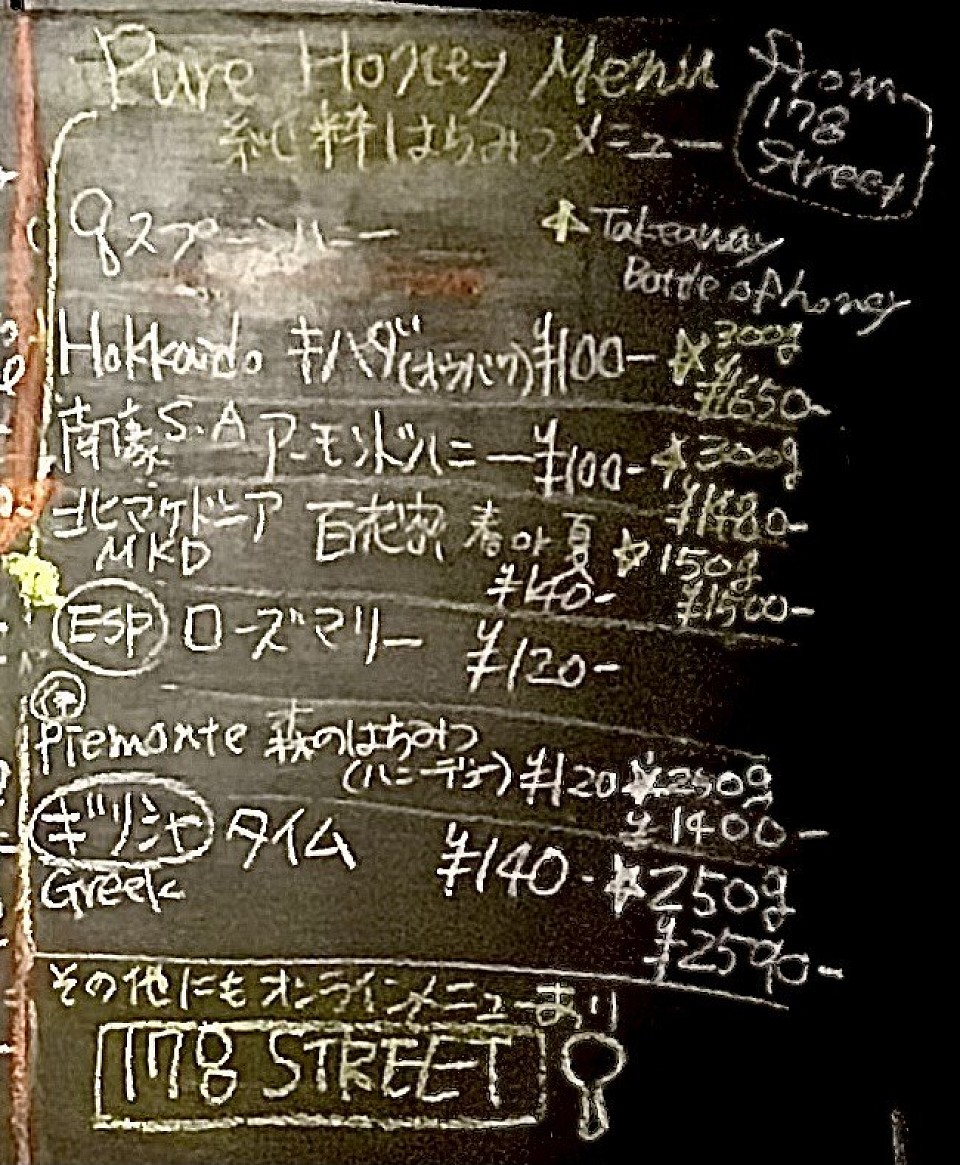 Pure Honey Menu
From
178
Street
純粋はちみつメニュー
スプーンハニー
Takeaway
Bottle of honey
Hokkaido キハダ(オウバク) ¥100-
300g
¥1650-
南豪 S.A アーモンドハニー ¥100-
300g
¥1480-
北マケドニア 百花蜜 春or夏
MKD
¥140-
150g
¥1500-
ESP ローズマリー ¥120-
Piemonte 森のはちみつ
(ハニーデュ) ¥120
250g
¥1400-
ギリシャ タイム ¥140-
Greek
250g
¥2590-
その他にもオンラインメニューあり
178 STREET